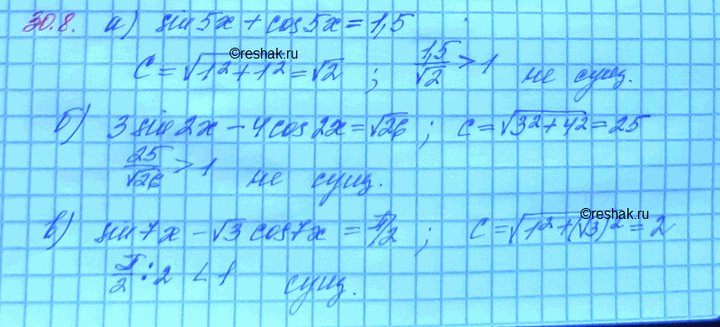 30.8. а) sin5x + cos5x = 1,5
©reshak.ru
C = √(1²+1²) = √2 ; 1,5/√2 > 1 не сущ.
б) 3sin2x − 4cos2x = √26 ; C = √(3²+4²) = 25
25/√26 > 1 не сущ.
©reshak.ru
в) sin7x − √3 cos7x = π/2 ; C = √(1²+(√3)²) = 2
π/2 : 2 < 1 сущ.